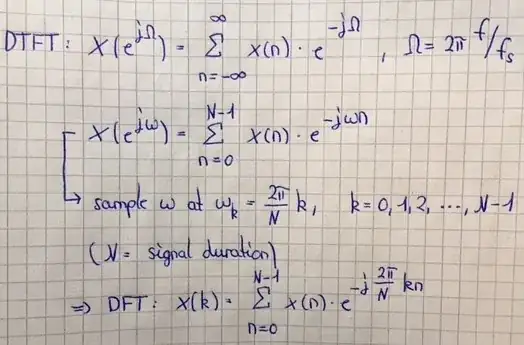 DTFT: X(e^{jΩ}) = ∑_{n=-∞}^{∞} x(n) · e^{-jΩ}, Ω = 2π f/f_s
X(e^{jω}) = ∑_{n=0}^{N-1} x(n) · e^{-jωn}
↳ sample ω at ω_k = \frac{2π}{N} k, k = 0, 1, 2, ..., N-1
(N = signal duration)
⇒ DFT: X(k) = ∑_{n=0}^{N-1} x(n) · e^{-j \frac{2π}{N} kn}